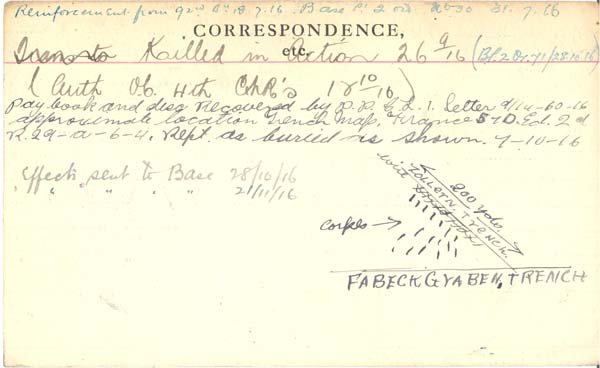 Reinforcement from 92nd Bn 18.7.16 Base Pt 2 ord 31.7.16
CORRESPONDENCE,
etc.
Killed in Action 26 9/16 (Bf. 2 Or. 71/28-10-16)
(Auth Ob. 4th CMR's 18 10/16)
Pay book and disc recovered by letter 9/14-60-16
approximate location Trench Map, France 57D. Ed. 2d
R.29-a-6-4. Rept. as buried as shown. 7-10-16
Effects sent to Base 28/10/16
" " " " 21/11/16
200 yds.
Zollern Trench
corpses
FABECK GRABEN, TRENCH